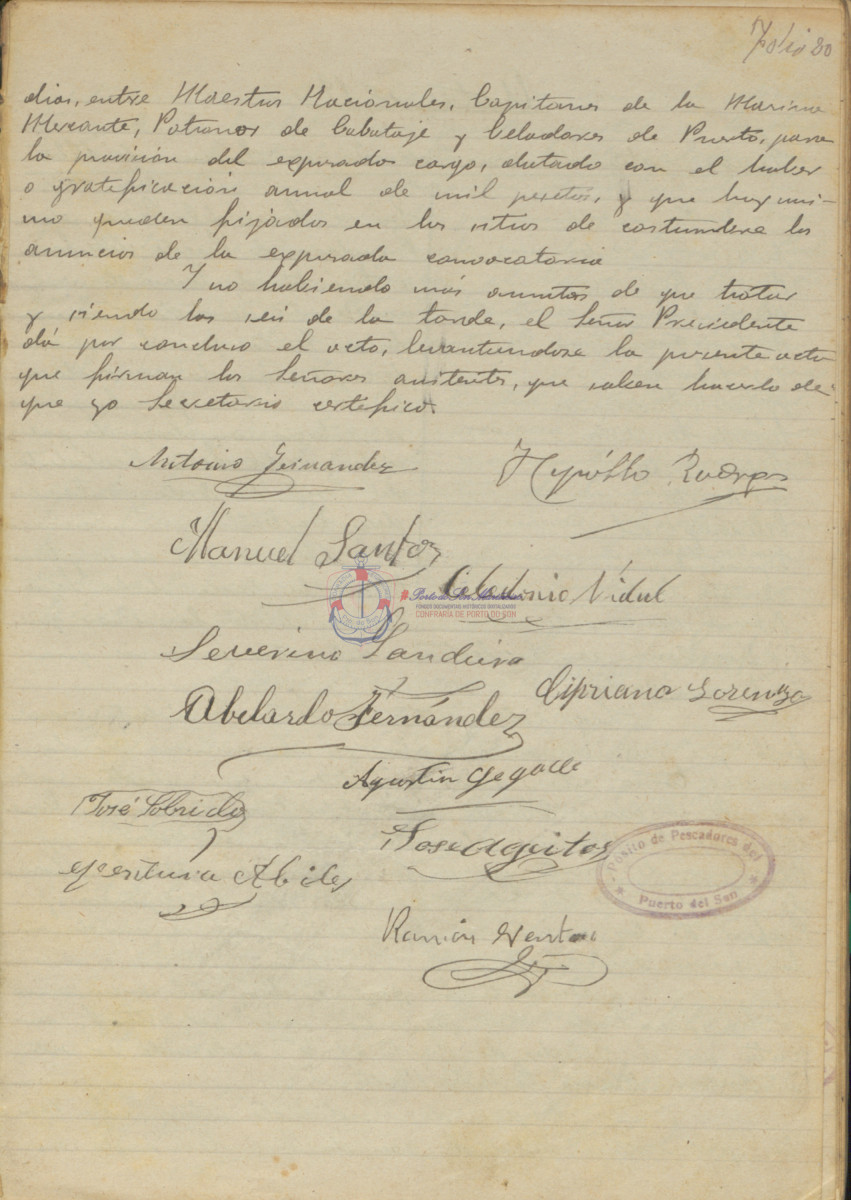 Folio 80
dias, entre Maestros Nacionales, Capitanes de la Marina
Mercante, Patronos de Cabotaje y Celadores de Puerto, para
la provisión del expresado cargo, dotado con el haber
o gratificación anual de mil pesetas, y que hoy mis-
mo queden fijados en los sitios de costumbre los
anuncios de la expresada convocatoria
Y no habiendo más asuntos de que tratar
y siendo las seis de la tarde, el Señor Presidente
dá por concluso el acto, levantandose la presente acta
que firman los Señores asistentes, que saben hacerlo de
que yo Secretario certifico.
Antonio Fernandez
Manuel Santos
Celedonio Vidal
Porto do Son
FONDOS DOCUMENTAIS HISTÓRICOS DIXITALIZADOS
CONFRARÍA DE PORTO DO SON
Severino Sandeira
Cipriano Lorenzo
Abelardo Fernández
Agustin
José Sobrido
Jose Ageitos
Pósito de Pescadores del
Puerto del Son
Ramón Ventoso